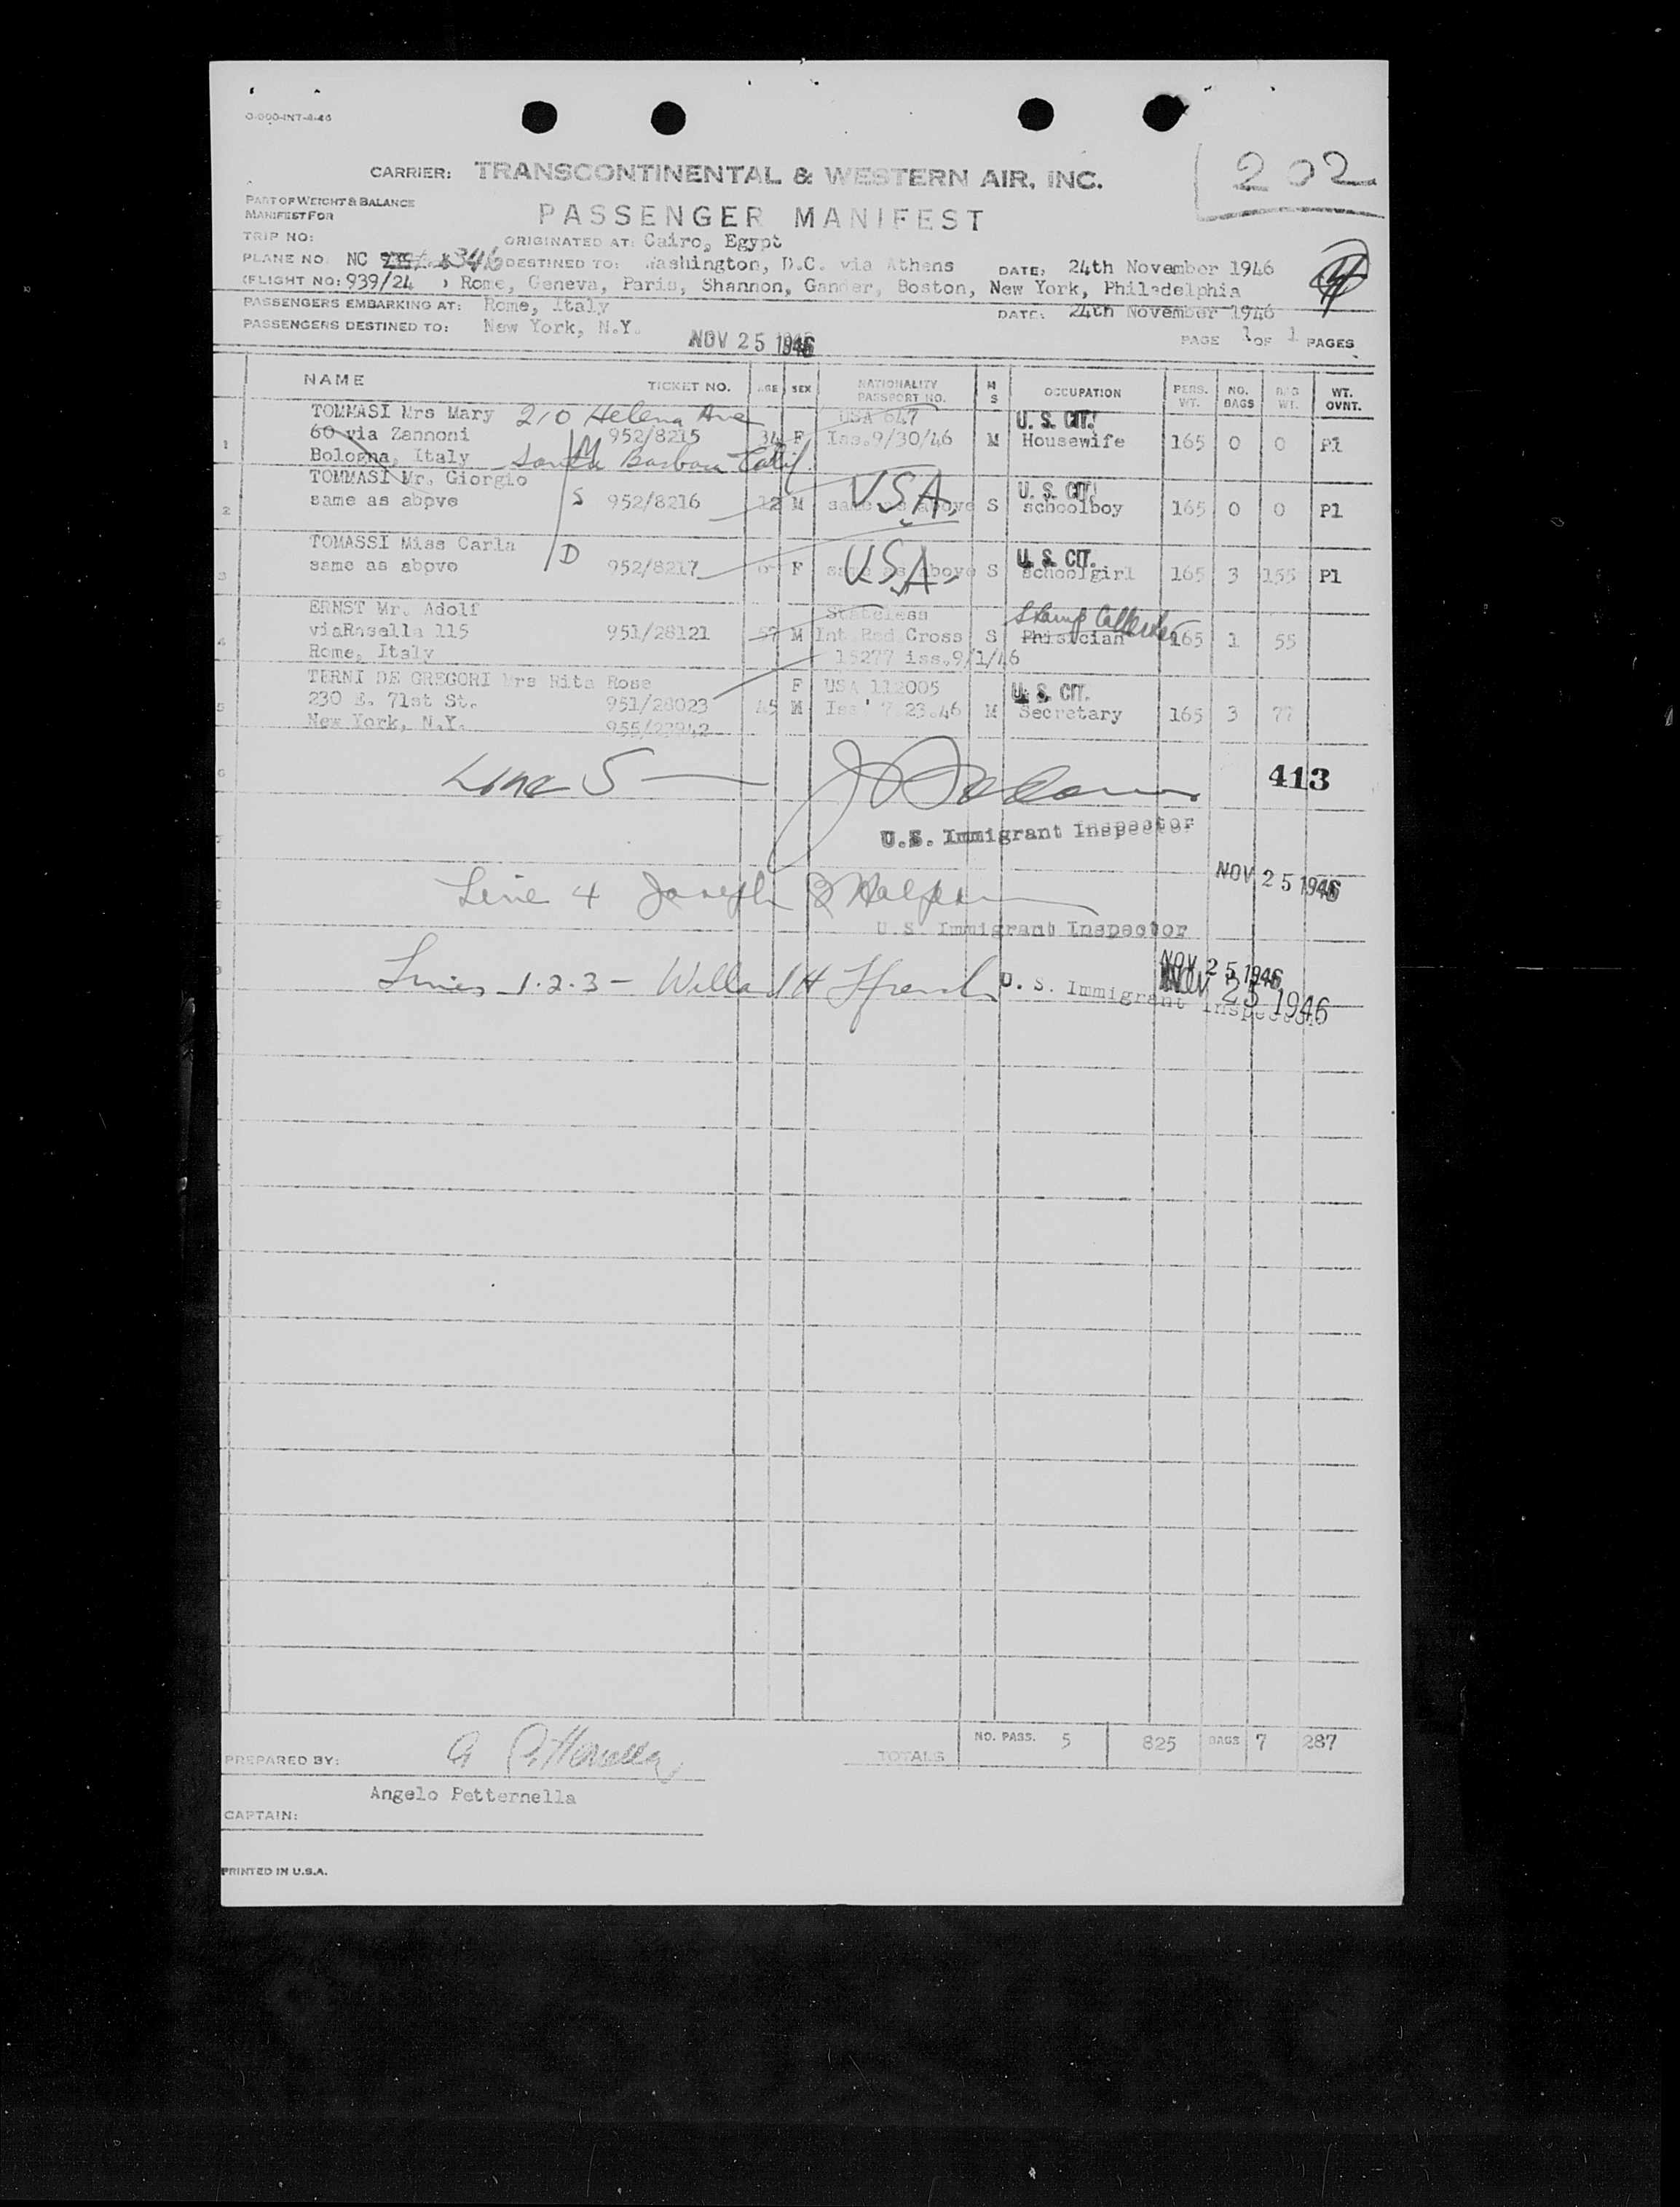 O-000-INT-4-46
202
CARRIER: TRANSCONTINENTAL & WESTERN AIR, INC.
PART OF WEIGHT & BALANCE
MANIFEST FOR
PASSENGER MANIFEST
TRIP NO:
ORIGINATED AT: Cairo, Egypt
PLANE NO NC 346 DESTINED TO: Washington, D.C. via Athens DATE: 24th November 1946
(FLIGHT NO: 939/24 ) Rome, Geneva, Paris, Shannon, Gander, Boston, New York, Philadelphia
PASSENGERS EMBARKING AT: Rome, Italy DATE: 24th November 1946
PASSENGERS DESTINED TO: New York, N.Y. NOV 25 1946 PAGE 1 OF 1 PAGES
NAME TICKET NO. AGE SEX NATIONALITY PASSPORT NO. M S OCCUPATION PERS. WT. NO. BAGS BAG WT. WT. OVNT.
TOMMASI Mrs Mary 210 Helena Ave USA 647 U. S. CIT.
1 60 via Zannoni M 952/8215 34 F Iss.9/30/46 M Housewife 165 0 0 Pl
Bologna, Italy Santa Barbara Calif.
TOMMASI Mr. Giorgio USA U. S. CIT.
2 same as abpve S 952/8216 12 M same as above S schoolboy 165 0 0 Pl
TOMASSI Miss Carla D USA U. S. CIT.
3 same as abpve 952/8217 F same as above S schoolgirl 165 3 155 Pl
ERNST Mr. Adolf Stateless Stamp Collector
4 viaRasella 115 951/28121 57 M Int Red Cross S Phisician 165 1 55
Rome, Italy 15277 iss.9/1/46
TERNI DE GREGORI Mrs Rita Rose F USA 112005 U. S. CIT.
5 230 E. 71st St. 951/28023 45 M Iss' 7.23.46 M Secretary 165 3 77
New York, N.Y. 955/23942
6 Line 5 413
U.S. Immigrant Inspector
NOV 25 1946
Line 4 Joseph B Halpern
U.S. Immigrant Inspector
NOV 25 1946
Lines 1.2.3 - Willard H French U. S. Immigrant Inspector
NOV 25 1946
PREPARED BY: TOTALS NO. PASS. 5 825 BAGS 7 287
Angelo Petternella
CAPTAIN:
PRINTED IN U.S.A.